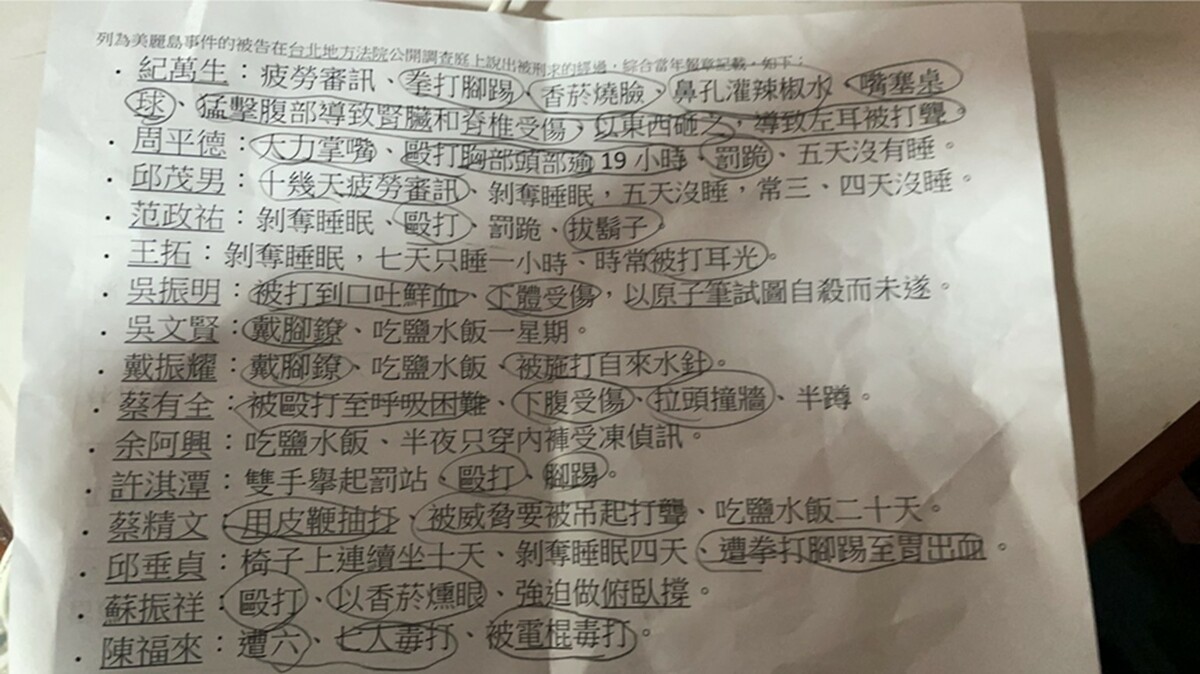 列為美麗島事件的被告在台北地方法院公開調查庭上說出被刑求的經過，綜合當年報章記載，如下：
· 紀萬生：疲勞審訊、拳打腳踢、香菸燒臉、鼻孔灌辣椒水、嘴塞桌
球、猛擊腹部導致腎臟和脊椎受傷、以東西砸之，導致左耳被打聾。
· 周平德：大力掌嘴、毆打胸部頭部逾 19 小時、罰跪、五天沒有睡。
· 邱茂男：十幾天疲勞審訊、剝奪睡眠，五天沒睡，常三、四天沒睡。
· 范政祐：剝奪睡眠、毆打、罰跪、拔鬍子。
· 王拓：剝奪睡眠，七天只睡一小時、時常被打耳光。
· 吳振明：被打到口吐鮮血、下體受傷，以原子筆試圖自殺而未遂。
· 吳文賢：戴腳鐐、吃鹽水飯一星期。
· 戴振耀：戴腳鐐、吃鹽水飯、被施打自來水針。
· 蔡有全：被毆打至呼吸困難、下腹受傷、拉頭撞牆、半蹲。
· 余阿興：吃鹽水飯、半夜只穿內褲受凍偵訊。
· 許淇潭：雙手舉起罰站、毆打、腳踢。
· 蔡精文：用皮鞭抽打、被威脅要被吊起打聾、吃鹽水飯二十天。
· 邱垂貞：椅子上連續坐十天、剝奪睡眠四天、遭拳打腳踢至胃出血。
· 蘇振祥：毆打、以香菸燻眼、強迫做俯臥撐。
· 陳福來：遭六、七人毒打、被電棍毒打。